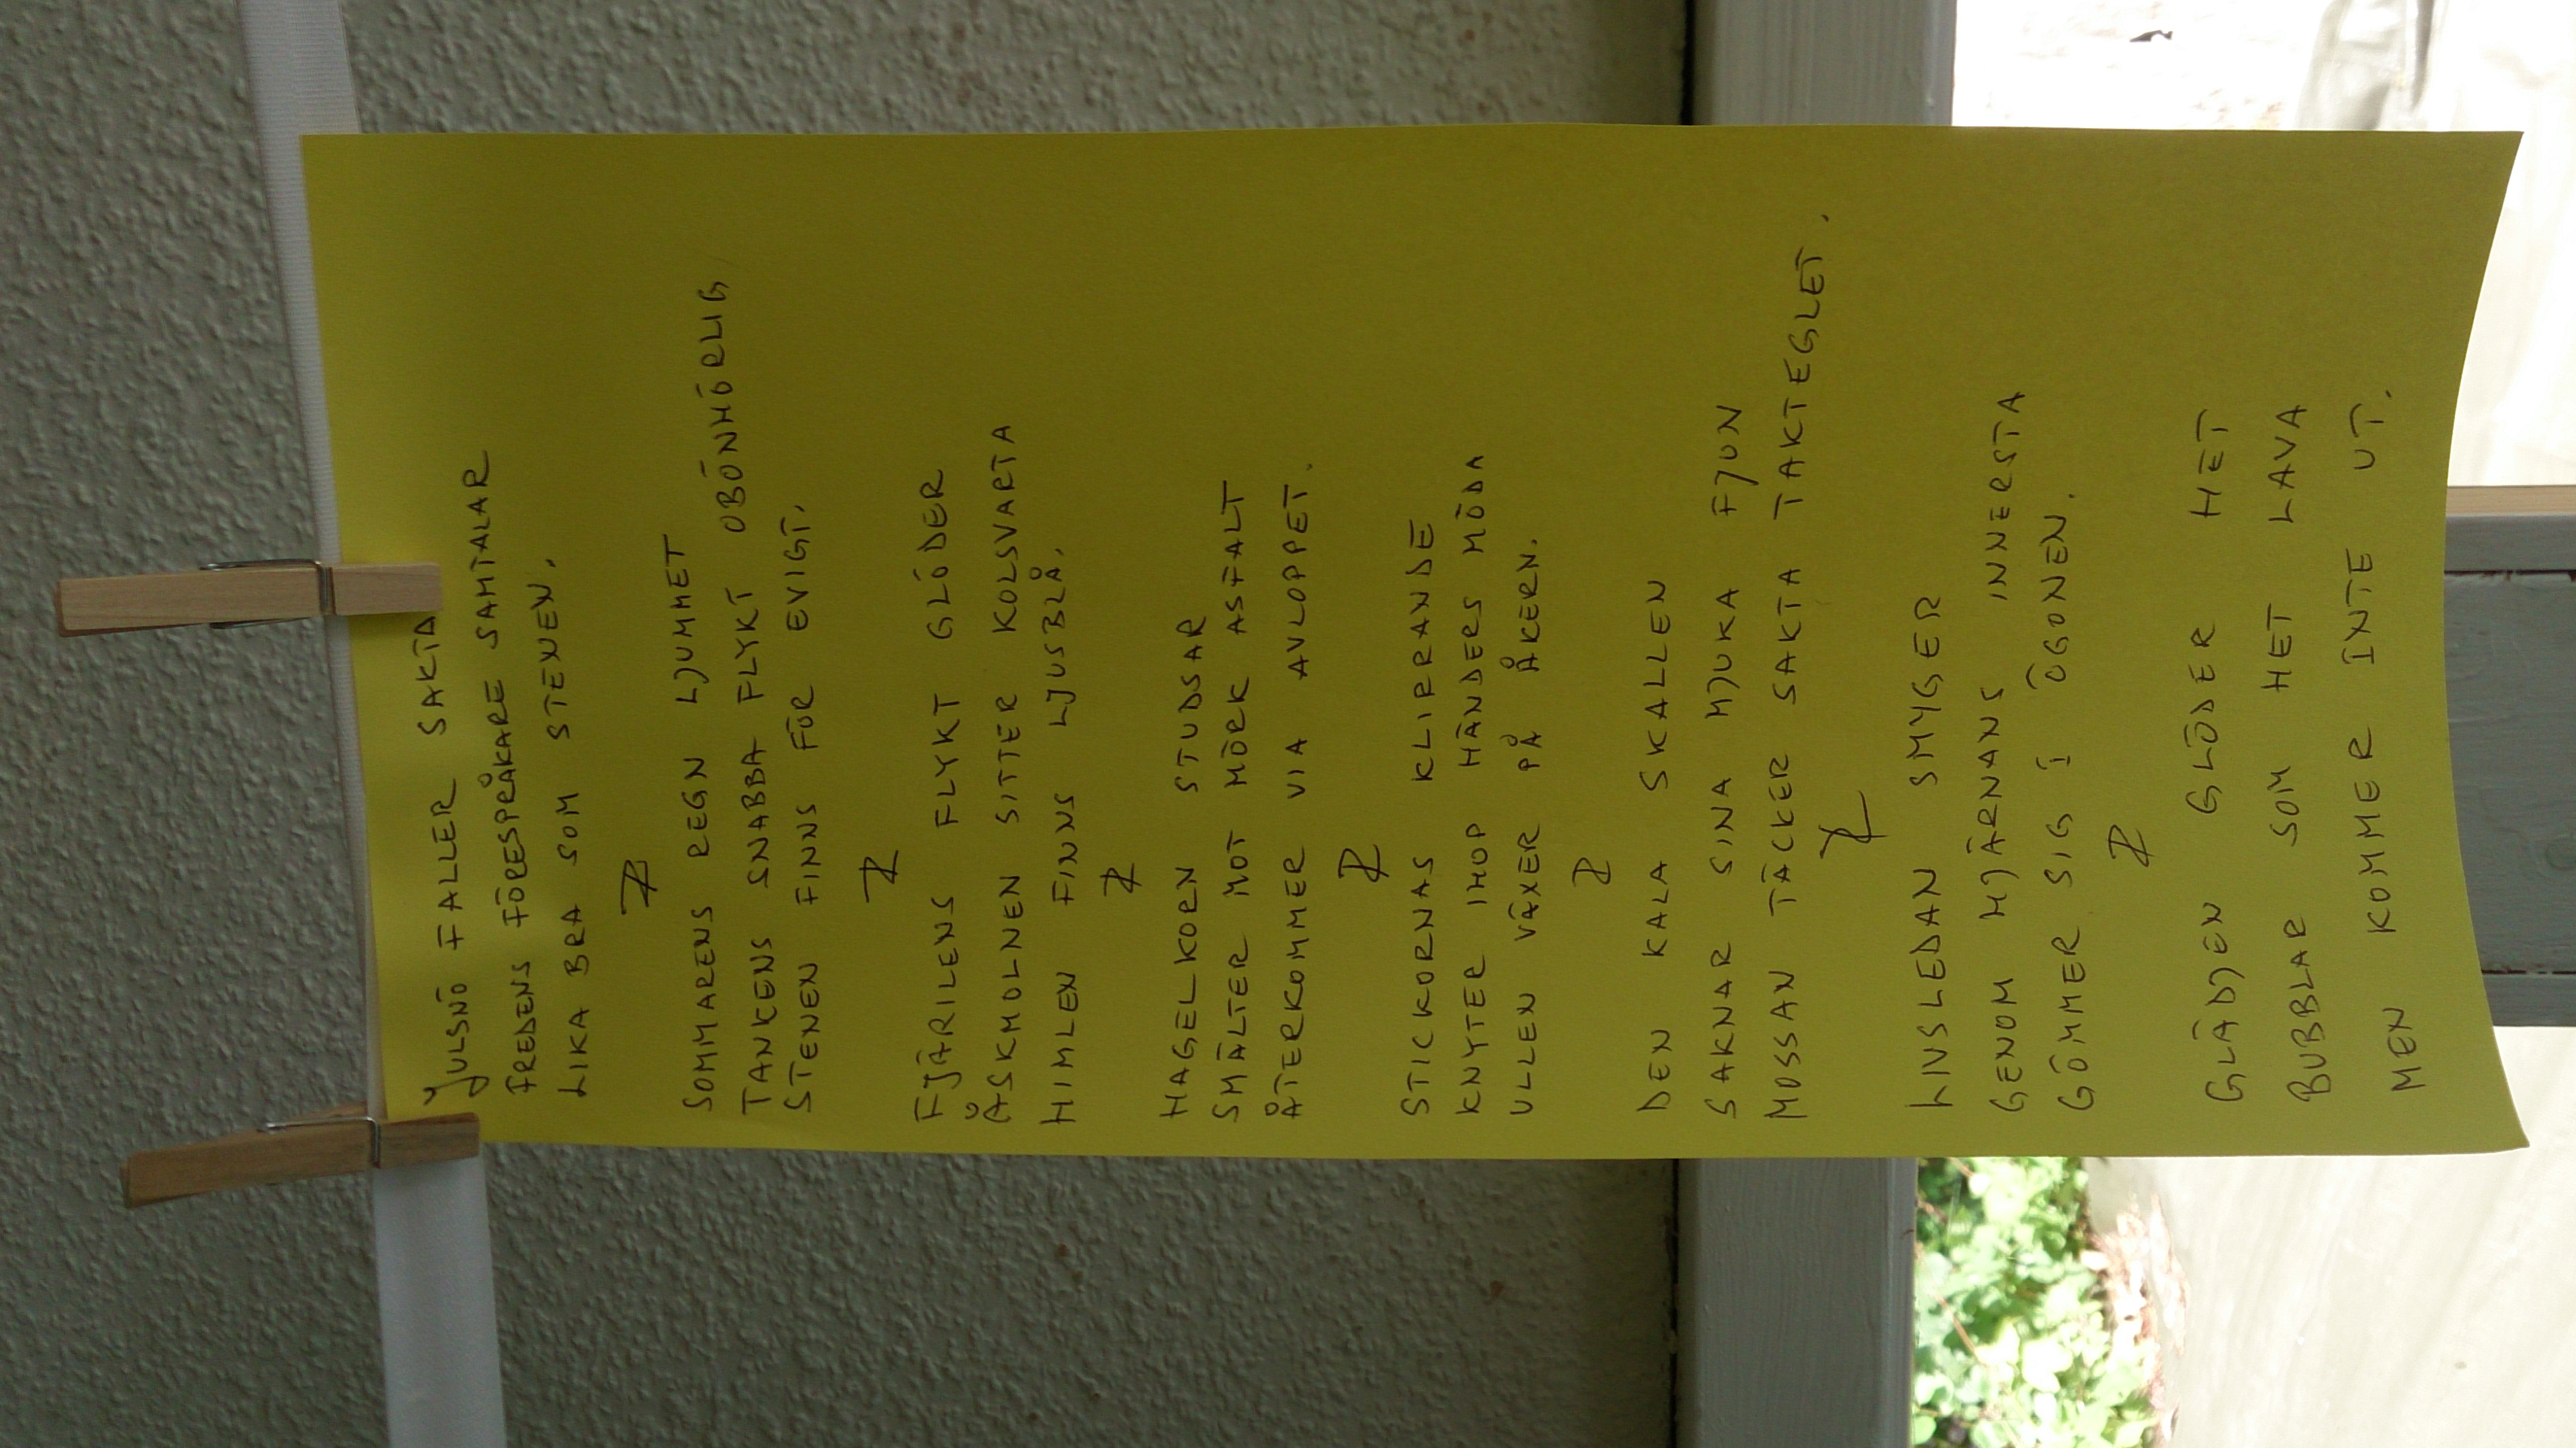 JULSNÖ FALLER SAKTA
FREDENS FÖRESPRÅKARE SAMTALAR
LIKA BRA SOM STENEN.
SOMMARENS REGN LJUMMET
TANKENS SNABBA FLYKT OBÖNHÖRLIG
STENEN FINNS FÖR EVIGT.
FJÄRILENS FLYKT GLÖDER
ÅSKMOLNEN SITTER KOLSVARTA
HIMLEN FINNS LJUSBLÅ.
HAGELKORN STUDSAR
SMÄLTER MOT MÖRK ASFALT
ÅTERKOMMER VIA AVLOPPET.
STICKORNAS KLIRANDE
KNYTER IHOP HÄNDERS MÖDA
ULLEN VÄXER PÅ ÅKERN.
DEN KALA SKALLEN
SAKNAR SINA MJUKA FJUN
MOSSAN TÄCKER SAKTA TAKTEGLET.
LIVSLEDAN SMYGER
GENOM HJÄRNANS INNERSTA
GÖMMER SIG I ÖGONEN.
GLÄDJEN GLÖDER HET
BUBBLAR SOM HET LAVA
MEN KOMMER INTE UT.